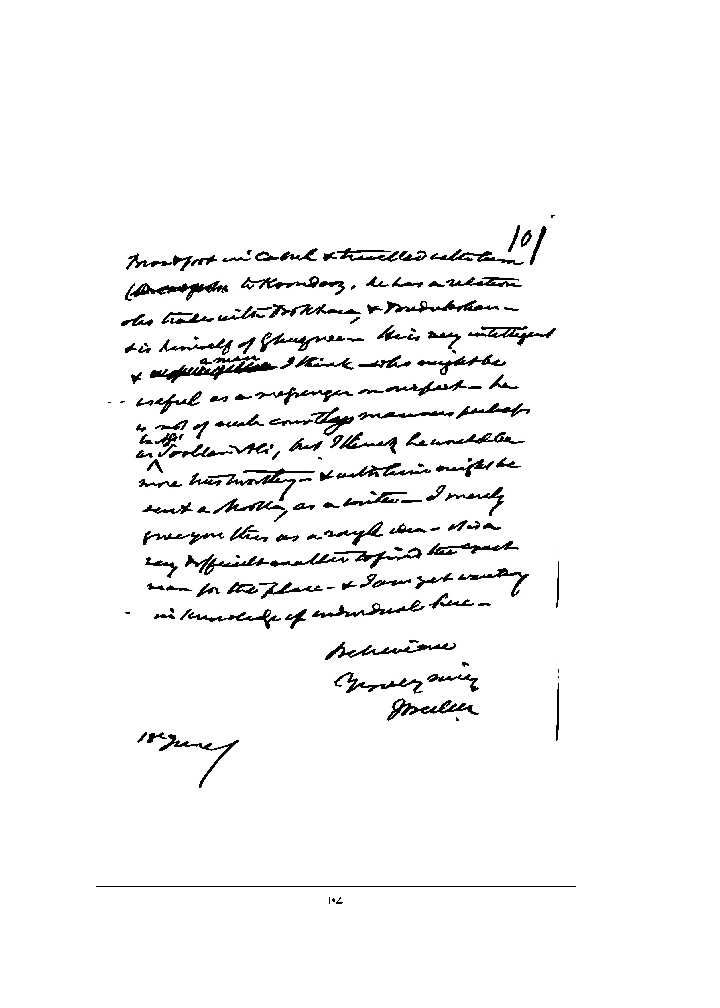 101
Broadfoot in Cabul & travelled with him
to Koondooz, he has a relation
who trades with Bokhara, & Budukshan —
& is himself of Ghuznee — He is very intelligent
& a man I think — who might be
useful as a messenger on our part — he
is not of such courtly manners perhaps
as Ali, but I think he would be
more trustworthy — & with him might be
sent a Moolla, as a writer — I merely
give you this as a rough idea — it is a
very difficult matter to find the exact
man for the place — & I am yet wanting
in knowledge of individuals here —
Believe me
Yours very
18th June
102